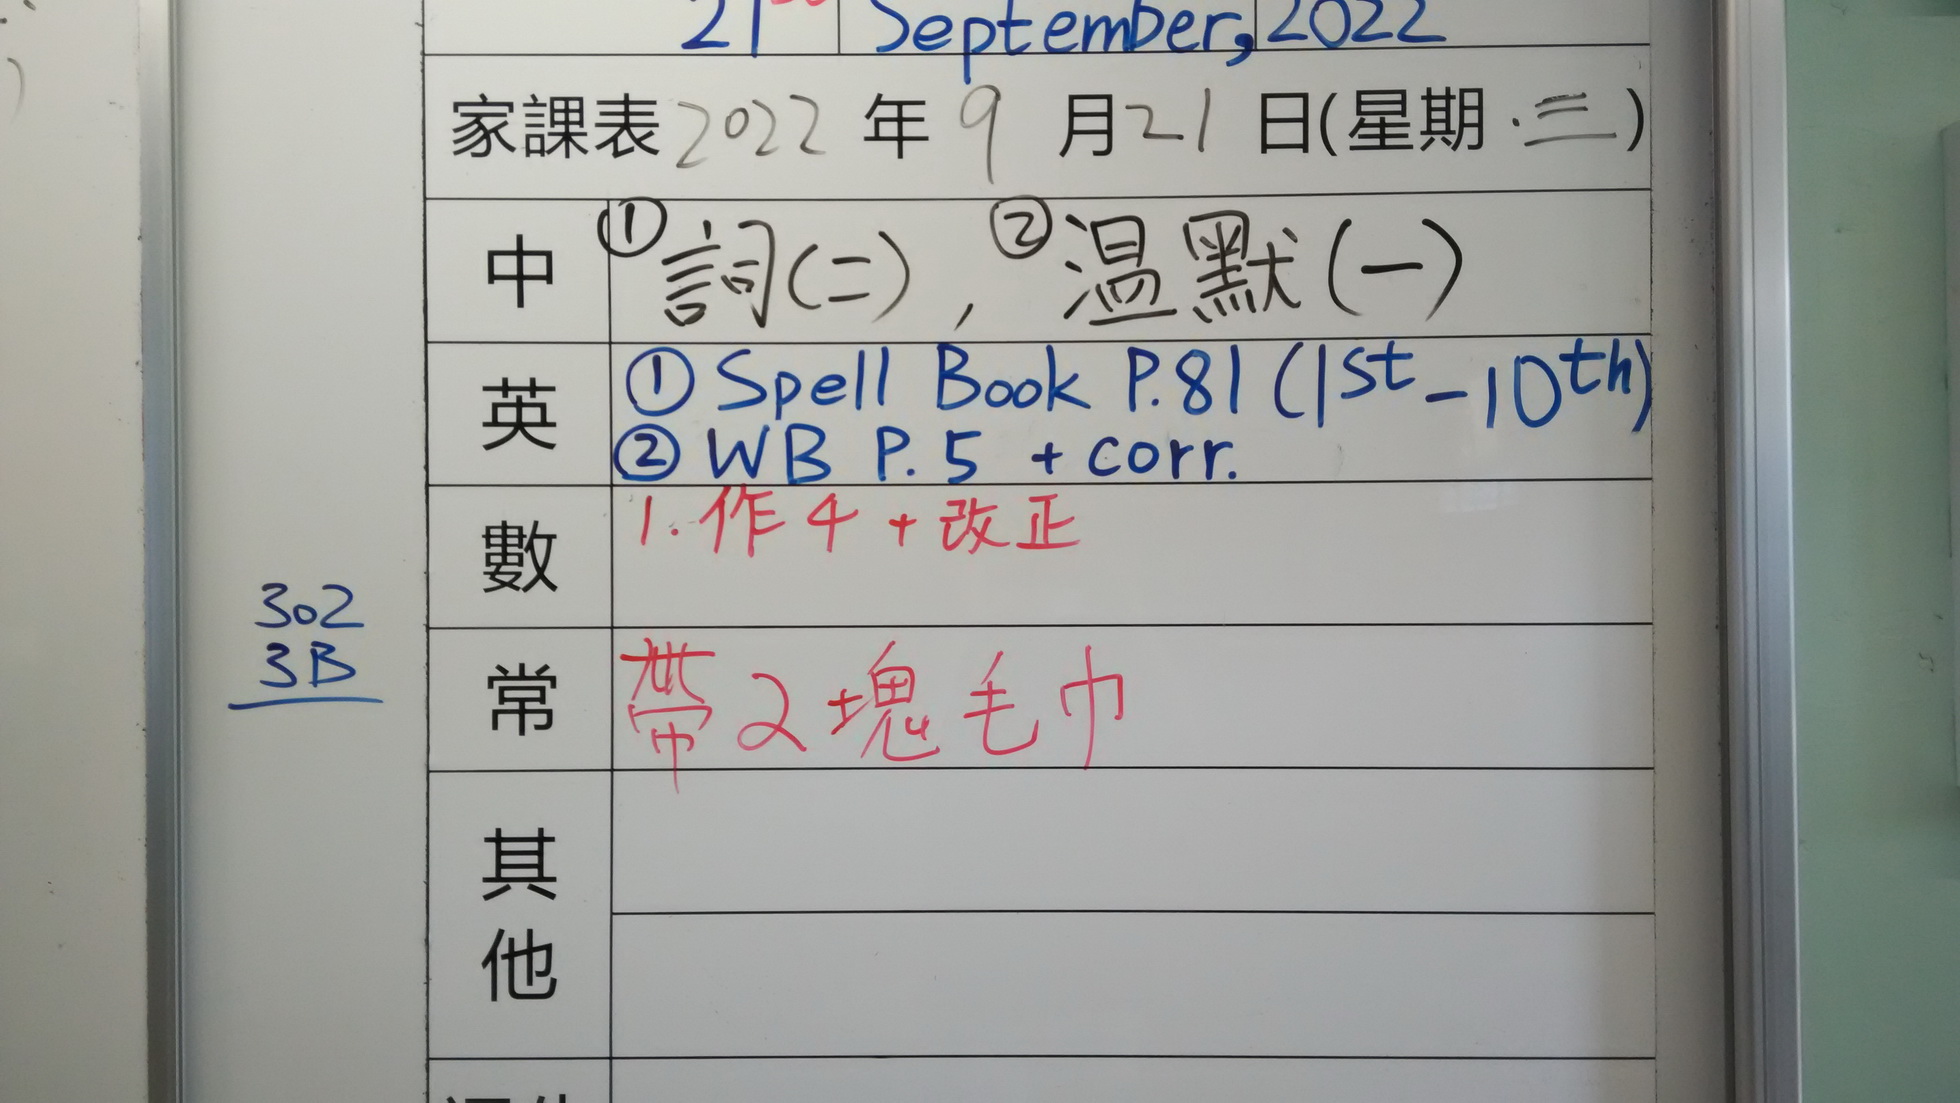 21st September, 2022
家課表 2022 年 9 月 21 日(星期 三)
中 ① 詞(二), ② 溫默(一)
英 ① Spell Book P.81 (1st - 10th)
② WB P. 5 + corr.
數 1. 作 4 + 改正
302
3B
常 帶 2 塊毛巾
其
他